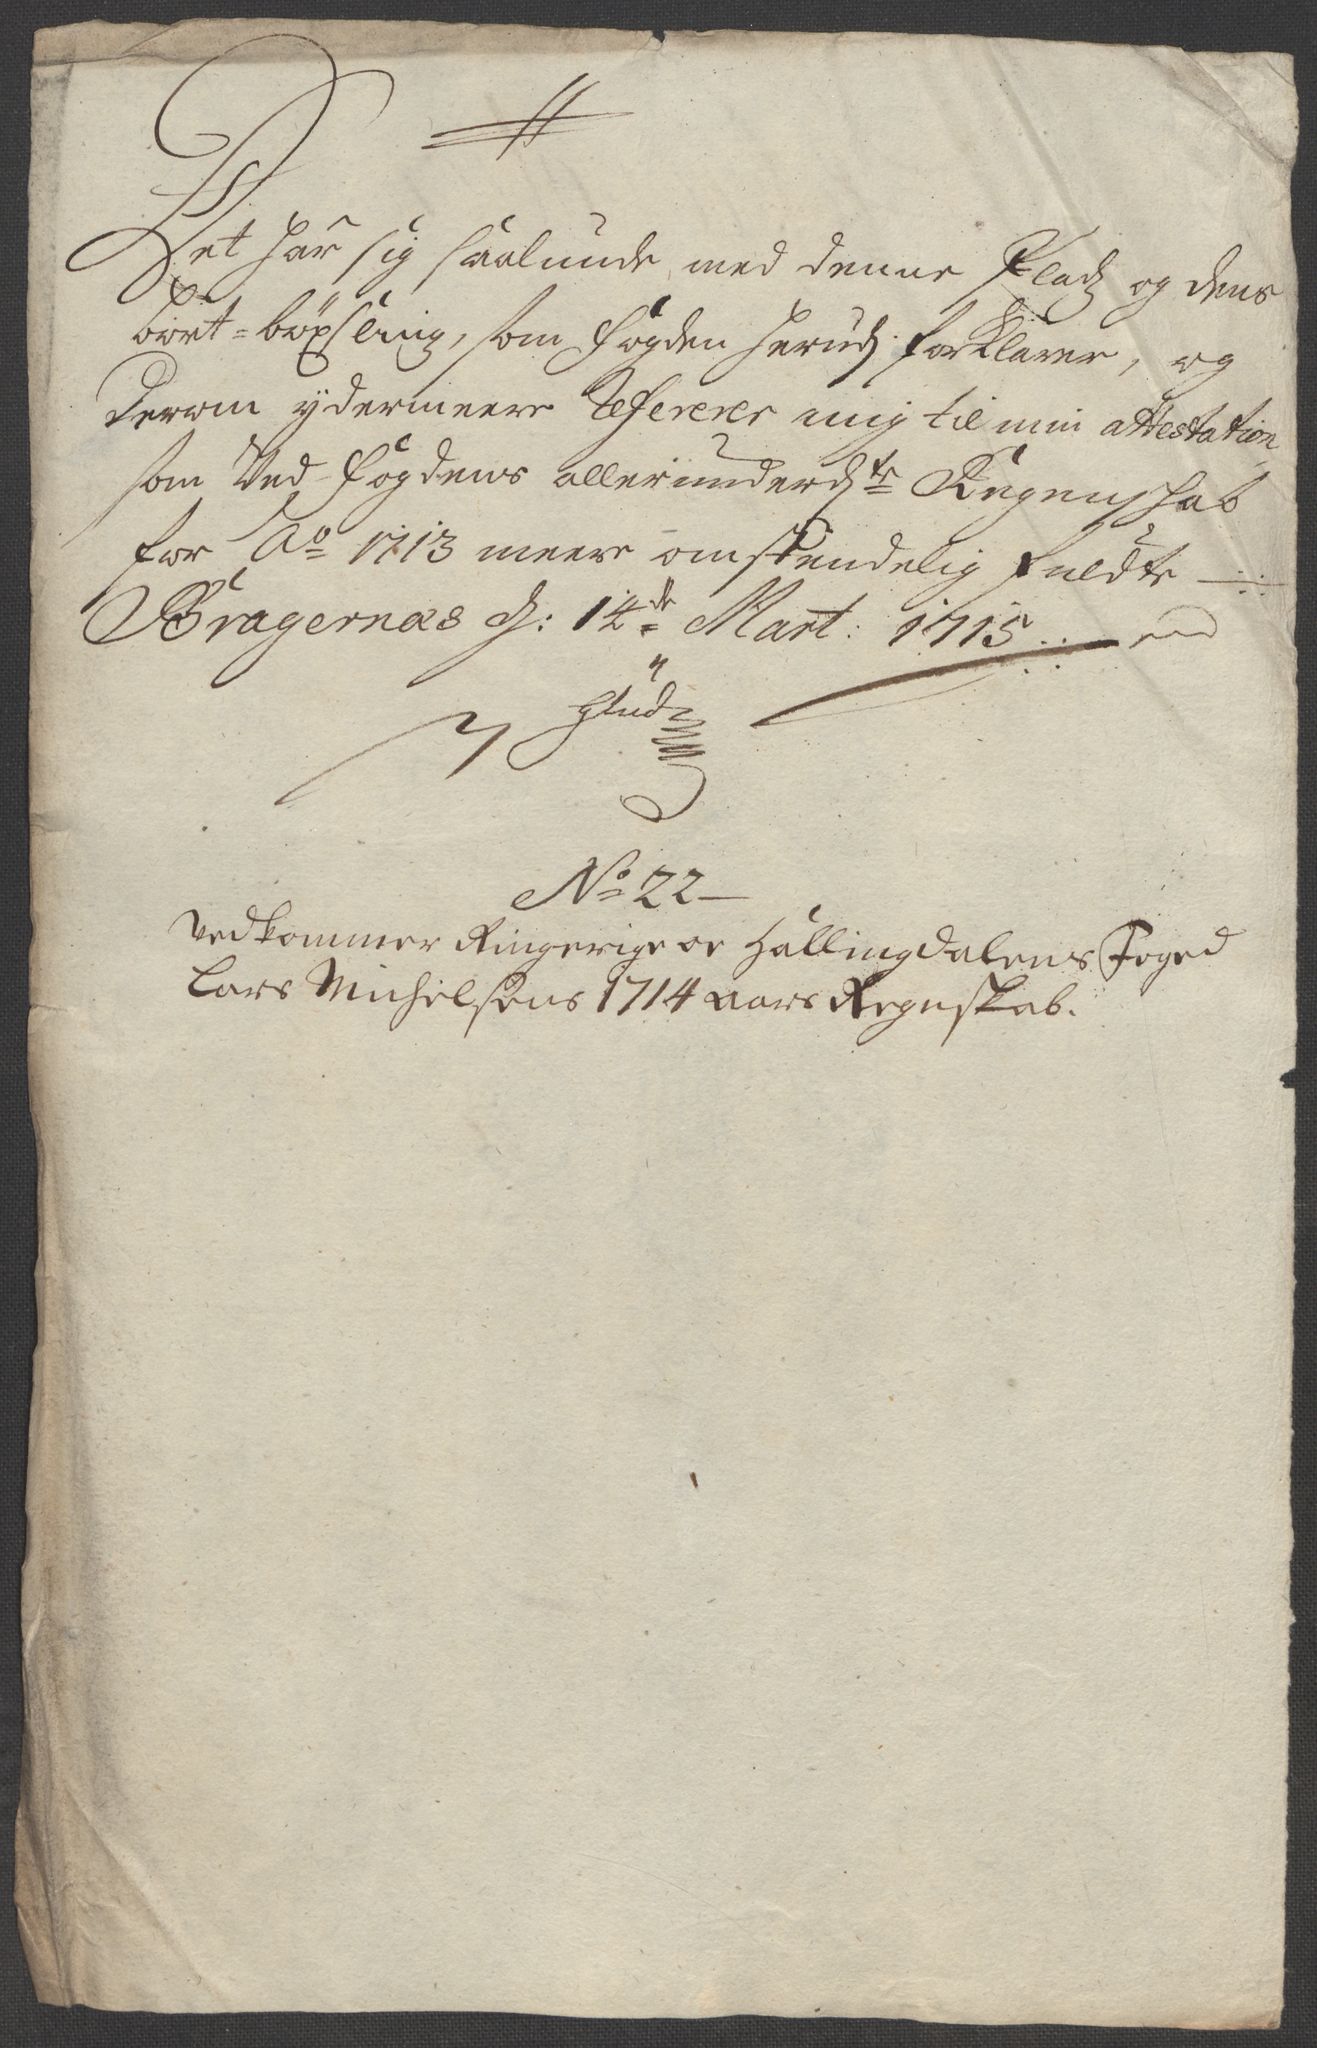 Det har sig saalunde med denne Pladz og dens
bort-böxsling, som fogden herudj forklarer, og
derom ydermeere Refererer mig til min attestation
som Ved fogdens allerunderd:te Regenschab
for Ao 1713 meere omstendelig fuldte
Bragernæs d: 14de Mart: 1715
No 22
Vedkommer Ringerige oc Hallingdalens Foged
Lars Michelsens 1714 aars Regnskab.